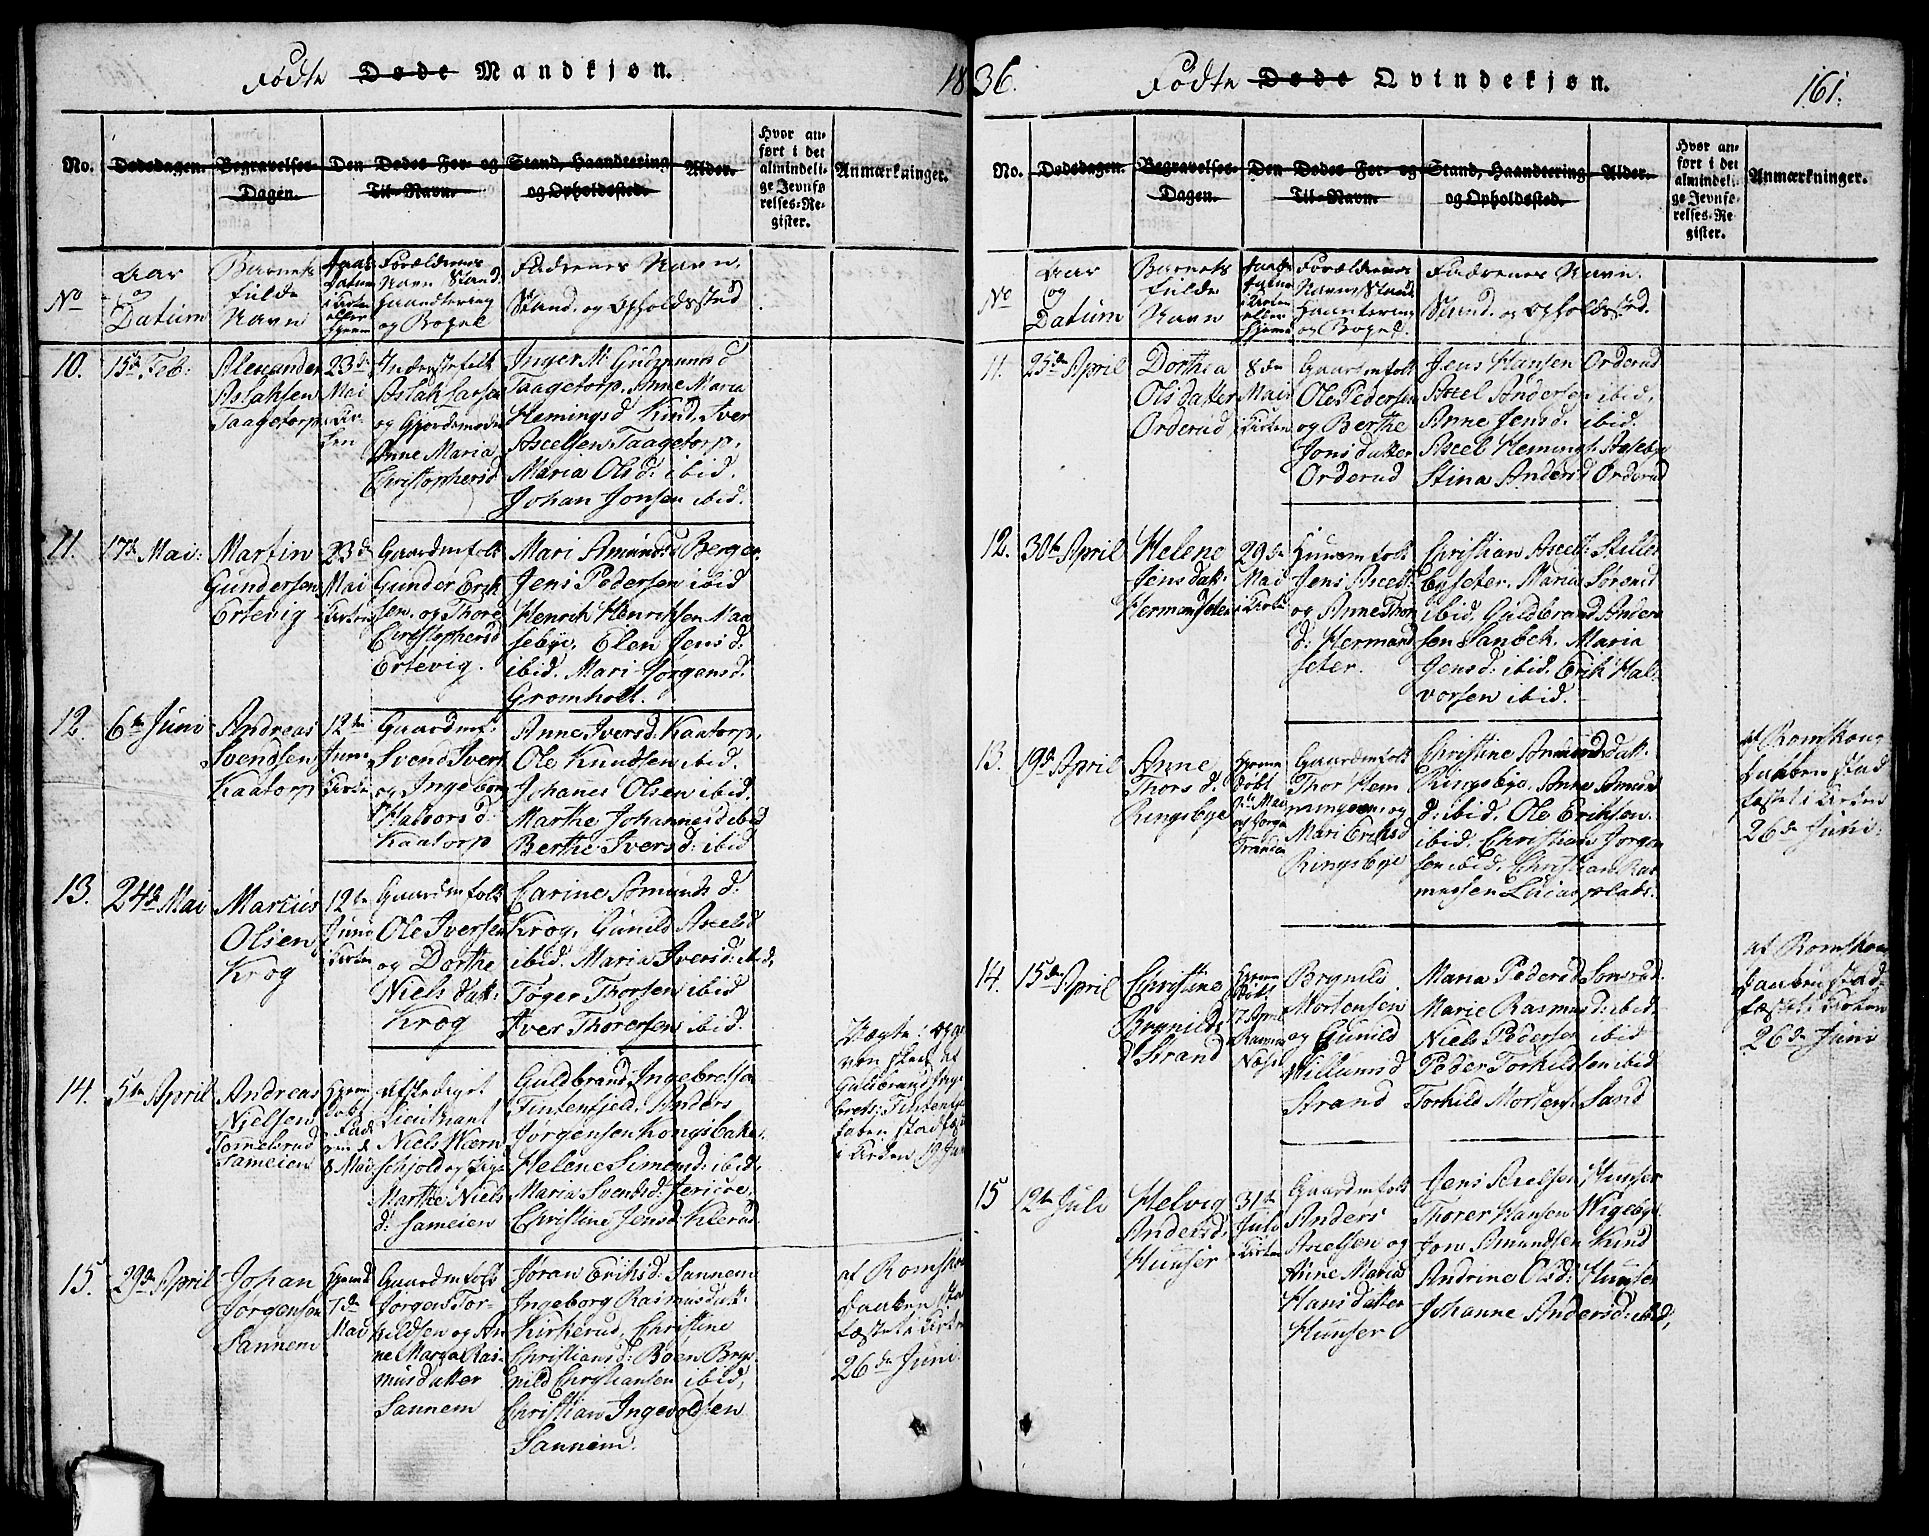 Fødte Døde Mandkjøn.
18
No.
Dødsdagen.
Begravelses-
Dagen.
Den Dødes For- og
Til-Navn.
Stand, Haandtering
og Opholdssted.
Alder.
Hvor an-
ført i det
almindeli-
ge Jevnfø-
relses-Re-
gister.
Anmærkninger.
No
Aar
og
Datum
Barnets
fulde
Navn
Daabs
Datum
i Kirken
eller
hjemme
Forældrenes
Navn Stand
Haandtering
og Bopel
Fadrenes Navn,
Stand, og Opholdssted
10.
15de Feb:
Alexander
Aslaksen
Taagetorp
23de
Mai
i Kir-
ken
Inderstefolk
Aslak Larsen
og Gjordemoder
Anne Maria
Christophersd
Inger M: Gudmunsd
Taagetorp. Anne Maria
Hemingsd Kind. Iver
Axelsen Taagetorp.
Maria Olsd: ibid.
Johan Jonsen ibid.
11.
17de Mai:
Martin
Gundersen
Ertevig
23de
Mai
Kirken
Gaardmfolk
Gunder Erik
sen. og Thore
Christophersd
Ertevig.
Mari Amundsd Berger
Jens Pedersen ibid
Henrich Henriksen Naa
sebye, Elen Jensd:
ibid. Mari Jørgensd.
Gromholt.
12.
6te Juni
Andreas
Svendsen
Kaatorp
12te
Juni
Kirken
Gaardmf:
Svend Ivers
og Ingebor
Halvorsd:
Kaatorp
Anne Iversd. Kaatorp,
Ole Knudsen ibid.
Johanes Olsen ibid
Marthe Johannesd ibid
Berthe Iversd: ibid
13.
24de Mai
Martius
Olsen
Krog
12te
Juni
Kirken
Gaardmfolk
Ole Iversen
og Dorthe
Niels datt:
Krog
Carine Amunsd:
Krog, Gunild Axelsd
ibid. Maria Iversd: ibid,
Tøger Thorsen ibid
Iver Thorersen ibid.
14.
5te April
Andreas
Nielsen
Tomebrud
Sameien
Hjem
døb
8 Mai
Afskediget
Lieutnant
Niels Wærn
schjold og Pige
Marthe Niels
d: Sameien
Guldbrand Ingebretsen
Tintenfjeld, Anders
Jørgensen Kongsbakke:
Helene Simensd: ibid.
Maria Svendsd: Jericoe,
Christine Jensd: Klerud
Guldbrand Inge
brets: Tintenfj
i Kirken 19 Jun
15.
29de April
Johan
Jørgensen
Sannem
Hjemd
7de
Mai
Gaardmfolk
Jørgen Tor-
kildsen og An
ne Maria Ras-
musdatter
Sannem
Jøran Eriksd: Sannem
Ingeborg Rasmusdatt:
Kirkerud, Christine
Christiansd: Boen Bryn
nild Christiansen ibid,
Christian Ingevoldsen
Sannem.
at Romskou
Daaben stad
fæstet i Kirken
26de Juni
36.
Fødte Døde Qvindekjøn.
161.
No.
Dødsdagen.
Begravelses-
Dagen.
Den Dødes For- og
Til-Navn.
Stand, Haandtering
og Opholdssted.
Alder.
Hvor an-
ført i det
almindeli-
ge Jevnfø-
relses-Re-
gister.
Anmærkninger.
No
Aar
og
Datum
Barnets
fulde
Navn
Daabs
Datum
i Kirken
eller
hjemme
Forældrenes
Navn, Stand
Haantering
og Bopel.
Fadrenes Navn.
Stand. og Opholdssted.
11.
25de April
Dorthea
Olsdatter
Orderud
8de
Mai
Kirken
Gaardmfolk
Ole Pedersen
og Berthe
Jonsdatter
Orderud
Jens Hansen Orderud
Axel Andersen ibid,
Anne Jensd. ibid.
Axel Hemings: Aasebye
Stina Andersd Orderud
12.
30te April
Helene
Jensdatt:
Hermandseten
29de
Mai
i Kirken
Huusmfolk
Jens Axels:
og Anne Thor
d: Hermand
seter.
Christian Axels: Stille
byseter. Maria Sørensd
ibid, Guldbrand Ander
sen Sanbek. Maria
Jensd: ibid. Erik Hal-
vorsen ibid.
13.
19de April
Anne
Thorsd.
Ringsbye
Hjemme
døbt
Gaardmfolk
Thor Hem
mingsen, og
Mari Eriksd
Ringsbye
Christine Amundsdatt:
Ringsbye. Anne Amund
d: ibid. Ole Eriksen.
ibid. Christian Jørgen
sen ibid. Christian Ras
mussen
at Romskoug
Daaben stad
fæstet i Kirken
26de Juni:
14.
15de April
Christine
Brynilds
d Strand
Hjemme
døbt
17 April
Brynild
Mortensen
og Gunild
Willumsd
Strand
Maria Pedersd Sonsrud.
Marie Rasmusd: ibid.
Niels Pedersen ibid
Peder Torkildsen ibid
Torkild Mortens: Sand
at Romskou
Daaben stad
fæstet i Kirken
26de Juni
15
12te Juli
Helvig
Andersd,
Huuser
31te
Juli
Kirken
Gaardmfolk
Anders
Axelsen og
Anne Maria
Hansdatter
Huuser
Jens Axelsen Huuser
Thorer Hansen Wigebye
Jon Amundsen Kind
Andrine Olsd: Huuser
Johanne Andersd: ibid,